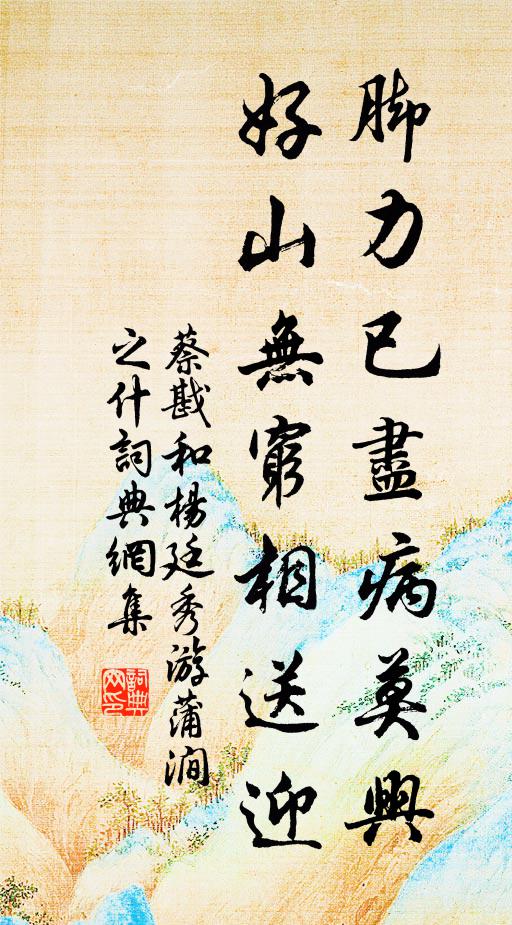 脚力已盡病莫興
好山無窮相送迎
蔡戡和楊廷秀游蒲澗
之什詞典網集
詞典
网印